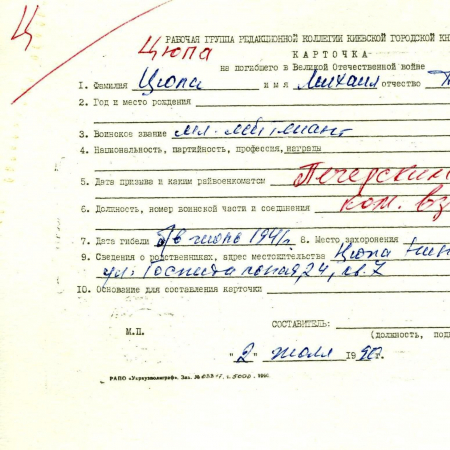 Ц
РАБОЧАЯ ГРУППА РЕДАКЦИОННОЙ КОЛЛЕГИИ КИЕВСКОЙ ГОРОДСКОЙ КН
Цюпа
КАРТОЧКА
на погибшего в Великой Отечественной войне
1. Фамилия Цюпа имя Михаил отчество
2. Год и место рождения
3. Воинское звание мл. лейтенант
4. Национальность, партийность, профессия, награды
5. Дата призыва и каким райвоенкоматом Печерским
6. Должность, номер воинской части и соединения ком. вз
7. Дата гибели 1941г. 8. Место захоронения
9. Сведения о родственниках, адрес местожительства Цюпа
ул. Госпитальная, 24, кв. 7
10. Основание для составления карточки
СОСТАВИТЕЛЬ:
М.П. (должность, под
"2" июля 1990г.
РАПО «Укрвузполиграф». Зак. №